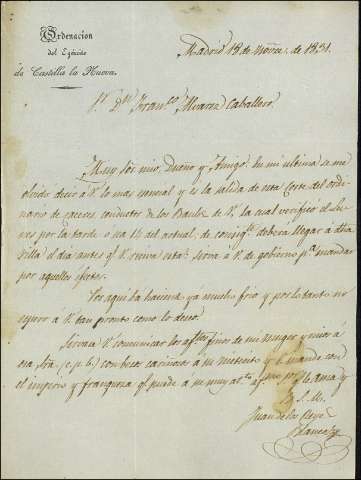 Ordenacion
del Egército
de Castilla la Nueva.
Madrid 18 de Novre. de 1831.
Sr. Dn. Franco. Alvarez Caballero.
Muy Sor. mio, Dueño y Amigo: En mi ultima se me
olvidó decir á V. lo mas esencial y es la salida de esta Corte del ordi-
nario de Caceres conductor de los Baules de V. la cual verificó el Lu-
nes por la tarde
del actual, de deberá llegar á esa
Villa el dia antes q. V. reciva esta: sirva á V. de gobierno pa. mandar
por aquellos
Por aqui hace ya mucho frio y por lo tanto no
espero á V. tan pronto como lo deseo.
Sirvase V. comunicar los afectos finos de mi muger y mios á
esa Sra. (c. p. b.) con besos cariñosos á mi y V. mande con
el imperio y franqueza q. puede á su muy
B. S. M.
Juan de los Reyes